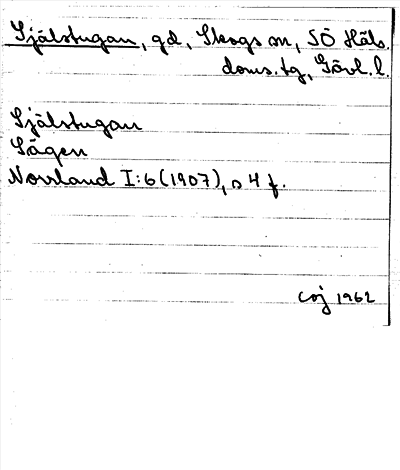 Själstugan, gd, Skogs sn, SÖ Häls.
doms. tg, Gävl. l.
Själstugan
Sägen
Norrland I:6 (1907), s 4 f.
COJ 1962